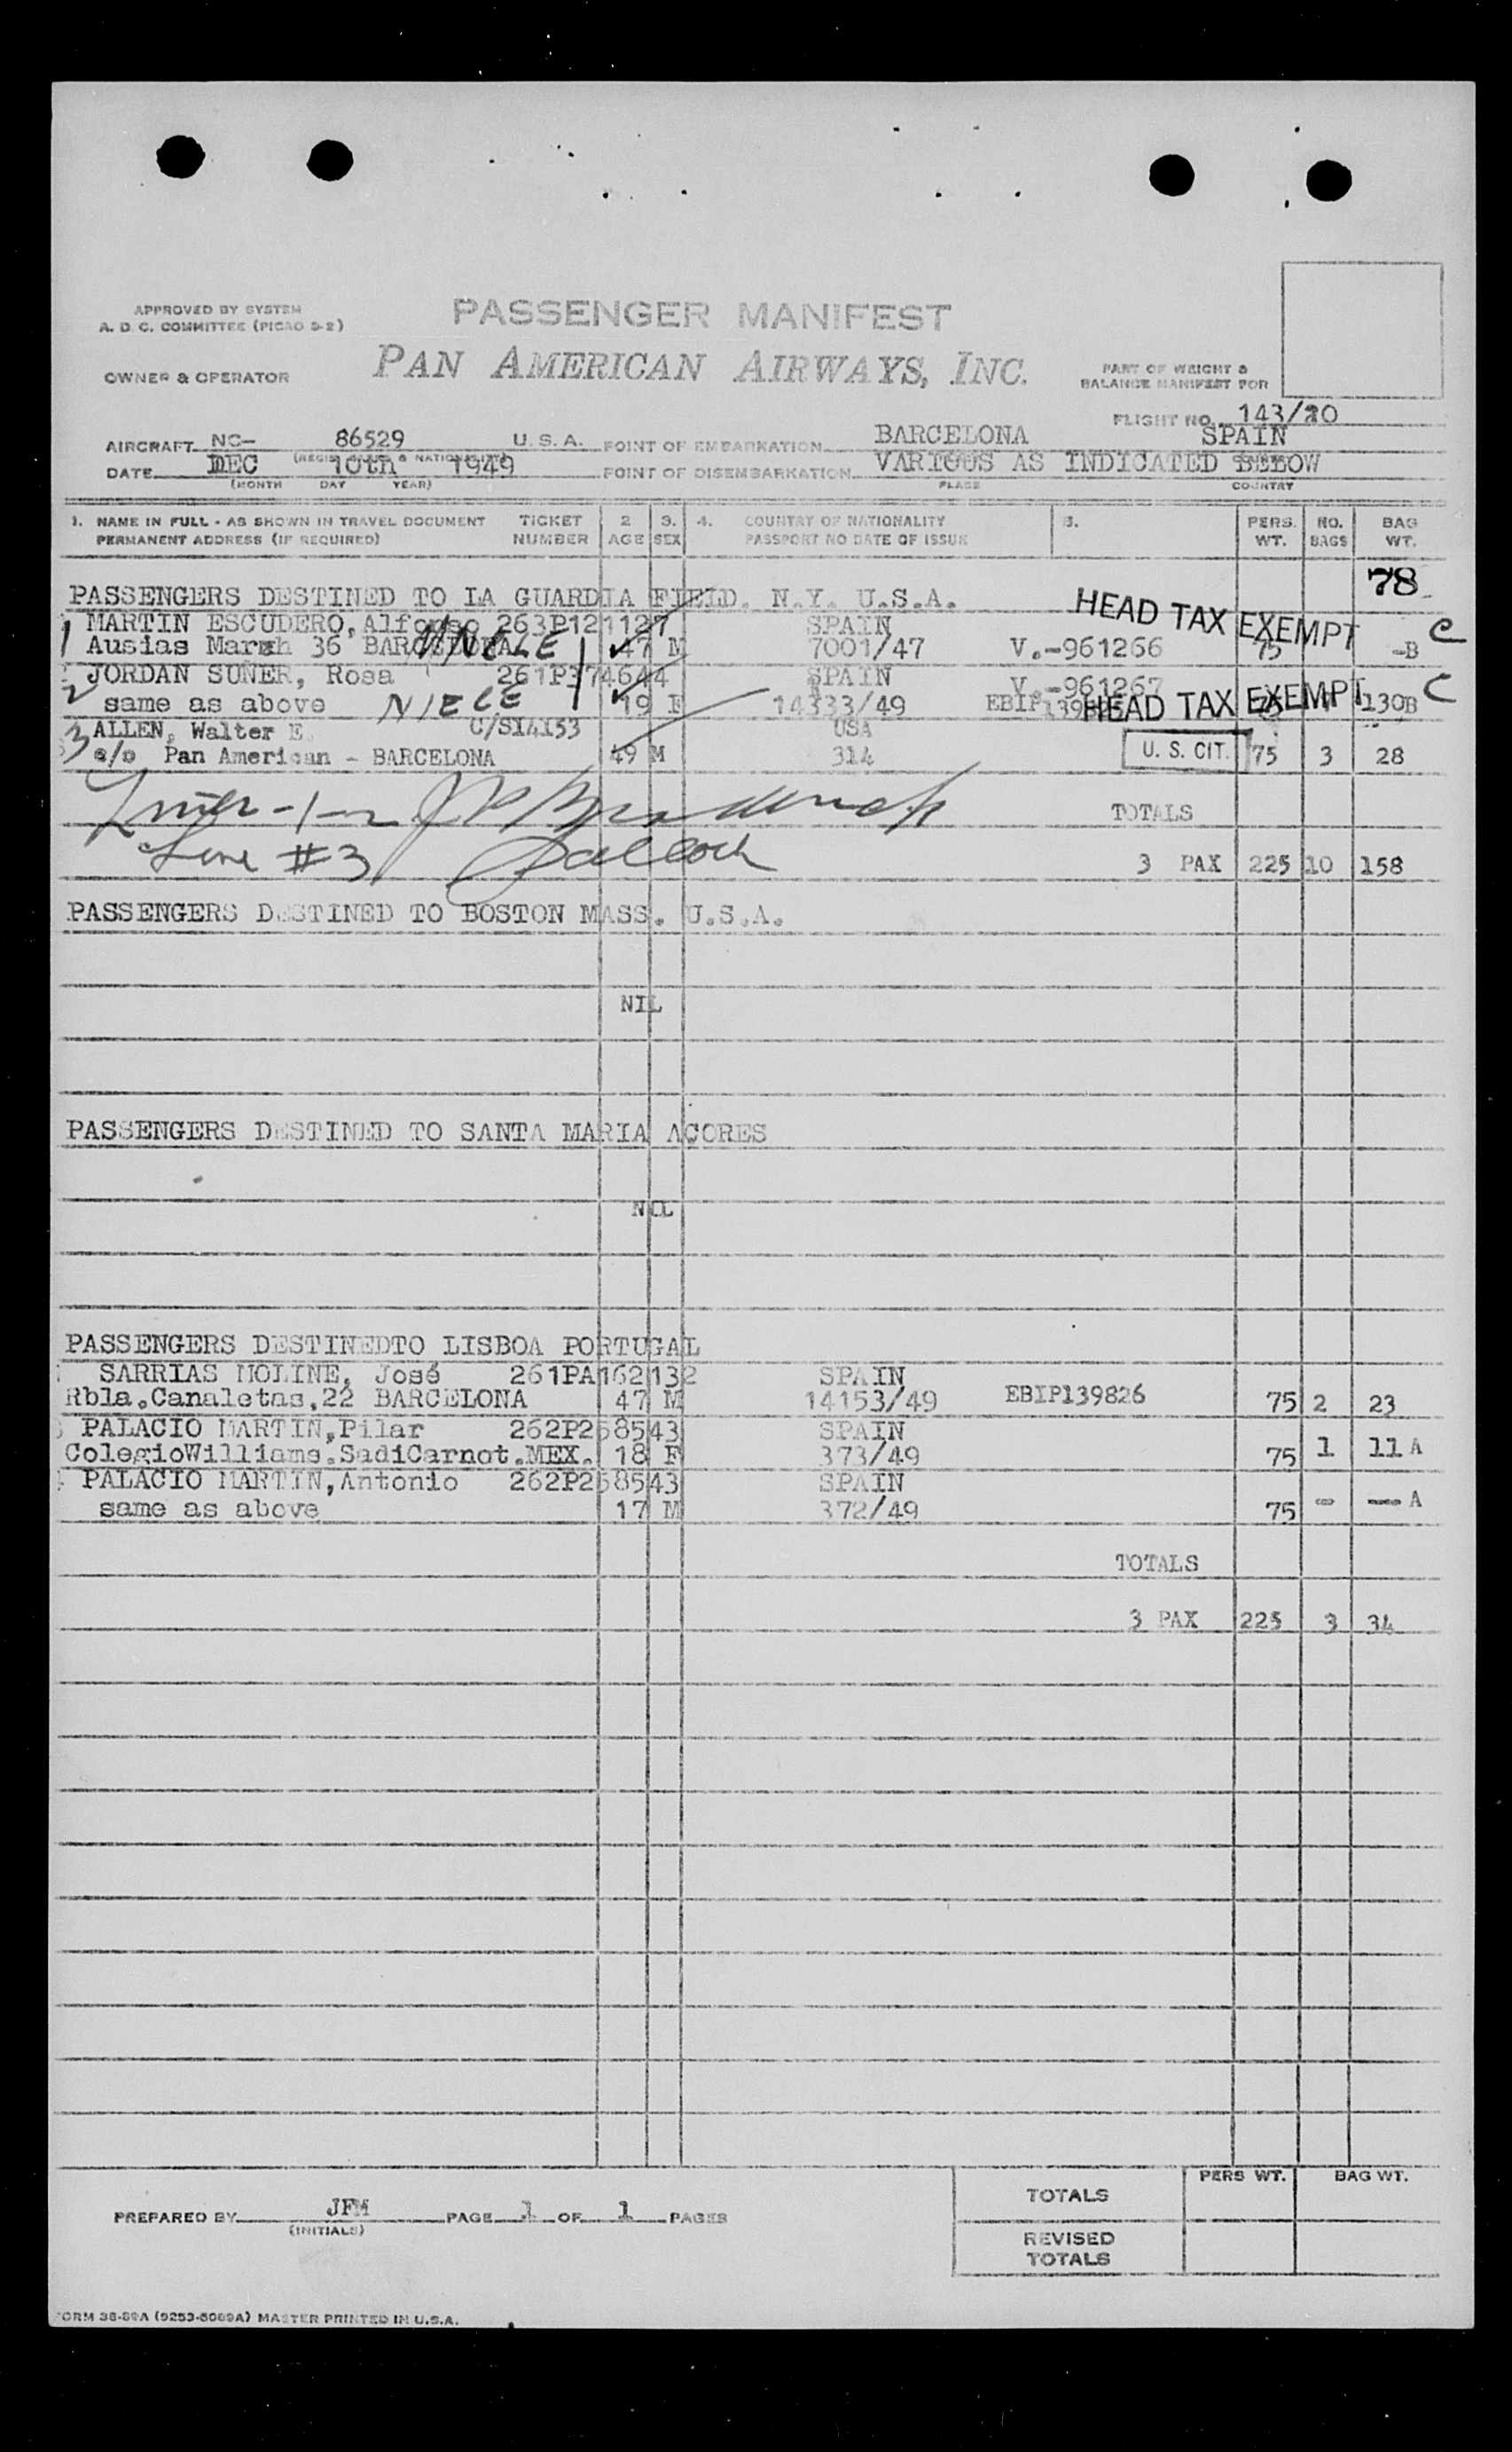 APPROVED BY SYSTEM
A. D. C. COMMITTEE (PICAO D-2)
PASSENGER MANIFEST
OWNER & OPERATOR
PAN AMERICAN AIRWAYS, INC.
PART OF WEIGHT &
BALANCE MANIFEST FOR
FLIGHT NO. 143/20
AIRCRAFT NC- 86529 U.S.A. POINT OF EMBARKATION BARCELONA SPAIN
DATE DEC 10th 1949 POINT OF DISEMBARKATION VARIOUS AS INDICATED BELOW
(MONTH DAY YEAR) PLACE COUNTRY
1. NAME IN FULL - AS SHOWN IN TRAVEL DOCUMENT TICKET 2 3. 4. COUNTRY OF NATIONALITY 5. PERS. NO. BAG
PERMANENT ADDRESS (IF REQUIRED) NUMBER AGE SEX PASSPORT NO DATE OF ISSUE WT. BAGS WT.
78
PASSENGERS DESTINED TO LA GUARDIA FIELD. N.Y. U.S.A. HEAD TAX EXEMPT
MARTIN ESCUDERO, Alfonso 263P121127 SPAIN C
1 Ausias March 36 BARCELONA 47 M 7001/47 V.-961266 75 -B
JORDAN SUÑER, Rosa 261P374644 SPAIN V.-961267
2 same as above NIECE 19 F 14333/49 HEAD TAX EXEMPT 130B C
ALLEN, Walter E. C/S14153 USA
3 c/o Pan American - BARCELONA 49 M 314 U. S. CIT. 75 3 28
TOTALS
Line #3
3 PAX 225 10 158
PASSENGERS DESTINED TO BOSTON MASS. U.S.A.
NIL
PASSENGERS DESTINED TO SANTA MARIA AÇORES
NIL
PASSENGERS DESTINEDTO LISBOA PORTUGAL
SARRIAS MOLINE, José 261PA162132 SPAIN
Rbla.Canaletas,22 BARCELONA 47 M 14153/49 EBIP139826 75 2 23
PALACIO MARTIN,Pilar 262P268543 SPAIN
ColegioWilliams.SadiCarnot.MEX. 18 F 373/49 75 1 11 A
PALACIO MARTIN,Antonio 262P268543 SPAIN
same as above 17 M 372/49 75 - — A
TOTALS
3 PAX 225 3 34
PERS WT. BAG WT.
TOTALS
PREPARED BY JFM PAGE 1 OF 1 PAGES
(INITIALS)
REVISED
TOTALS
FORM 38-89A (9253-5089A) MASTER PRINTED IN U.S.A.